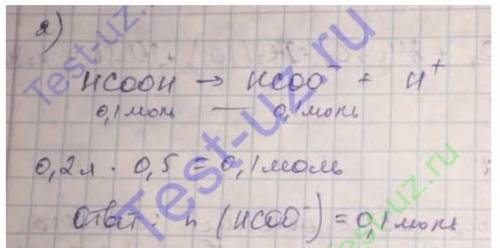 а)
HCOOH → HCOO⁻ + H⁺
0,1 моль — 0,1 моль
0,2 л · 0,5 = 0,1 моль
Ответ: n (HCOO⁻) = 0,1 моль
Test-uz.ru
Test-uz.ru
Test-uz.ru